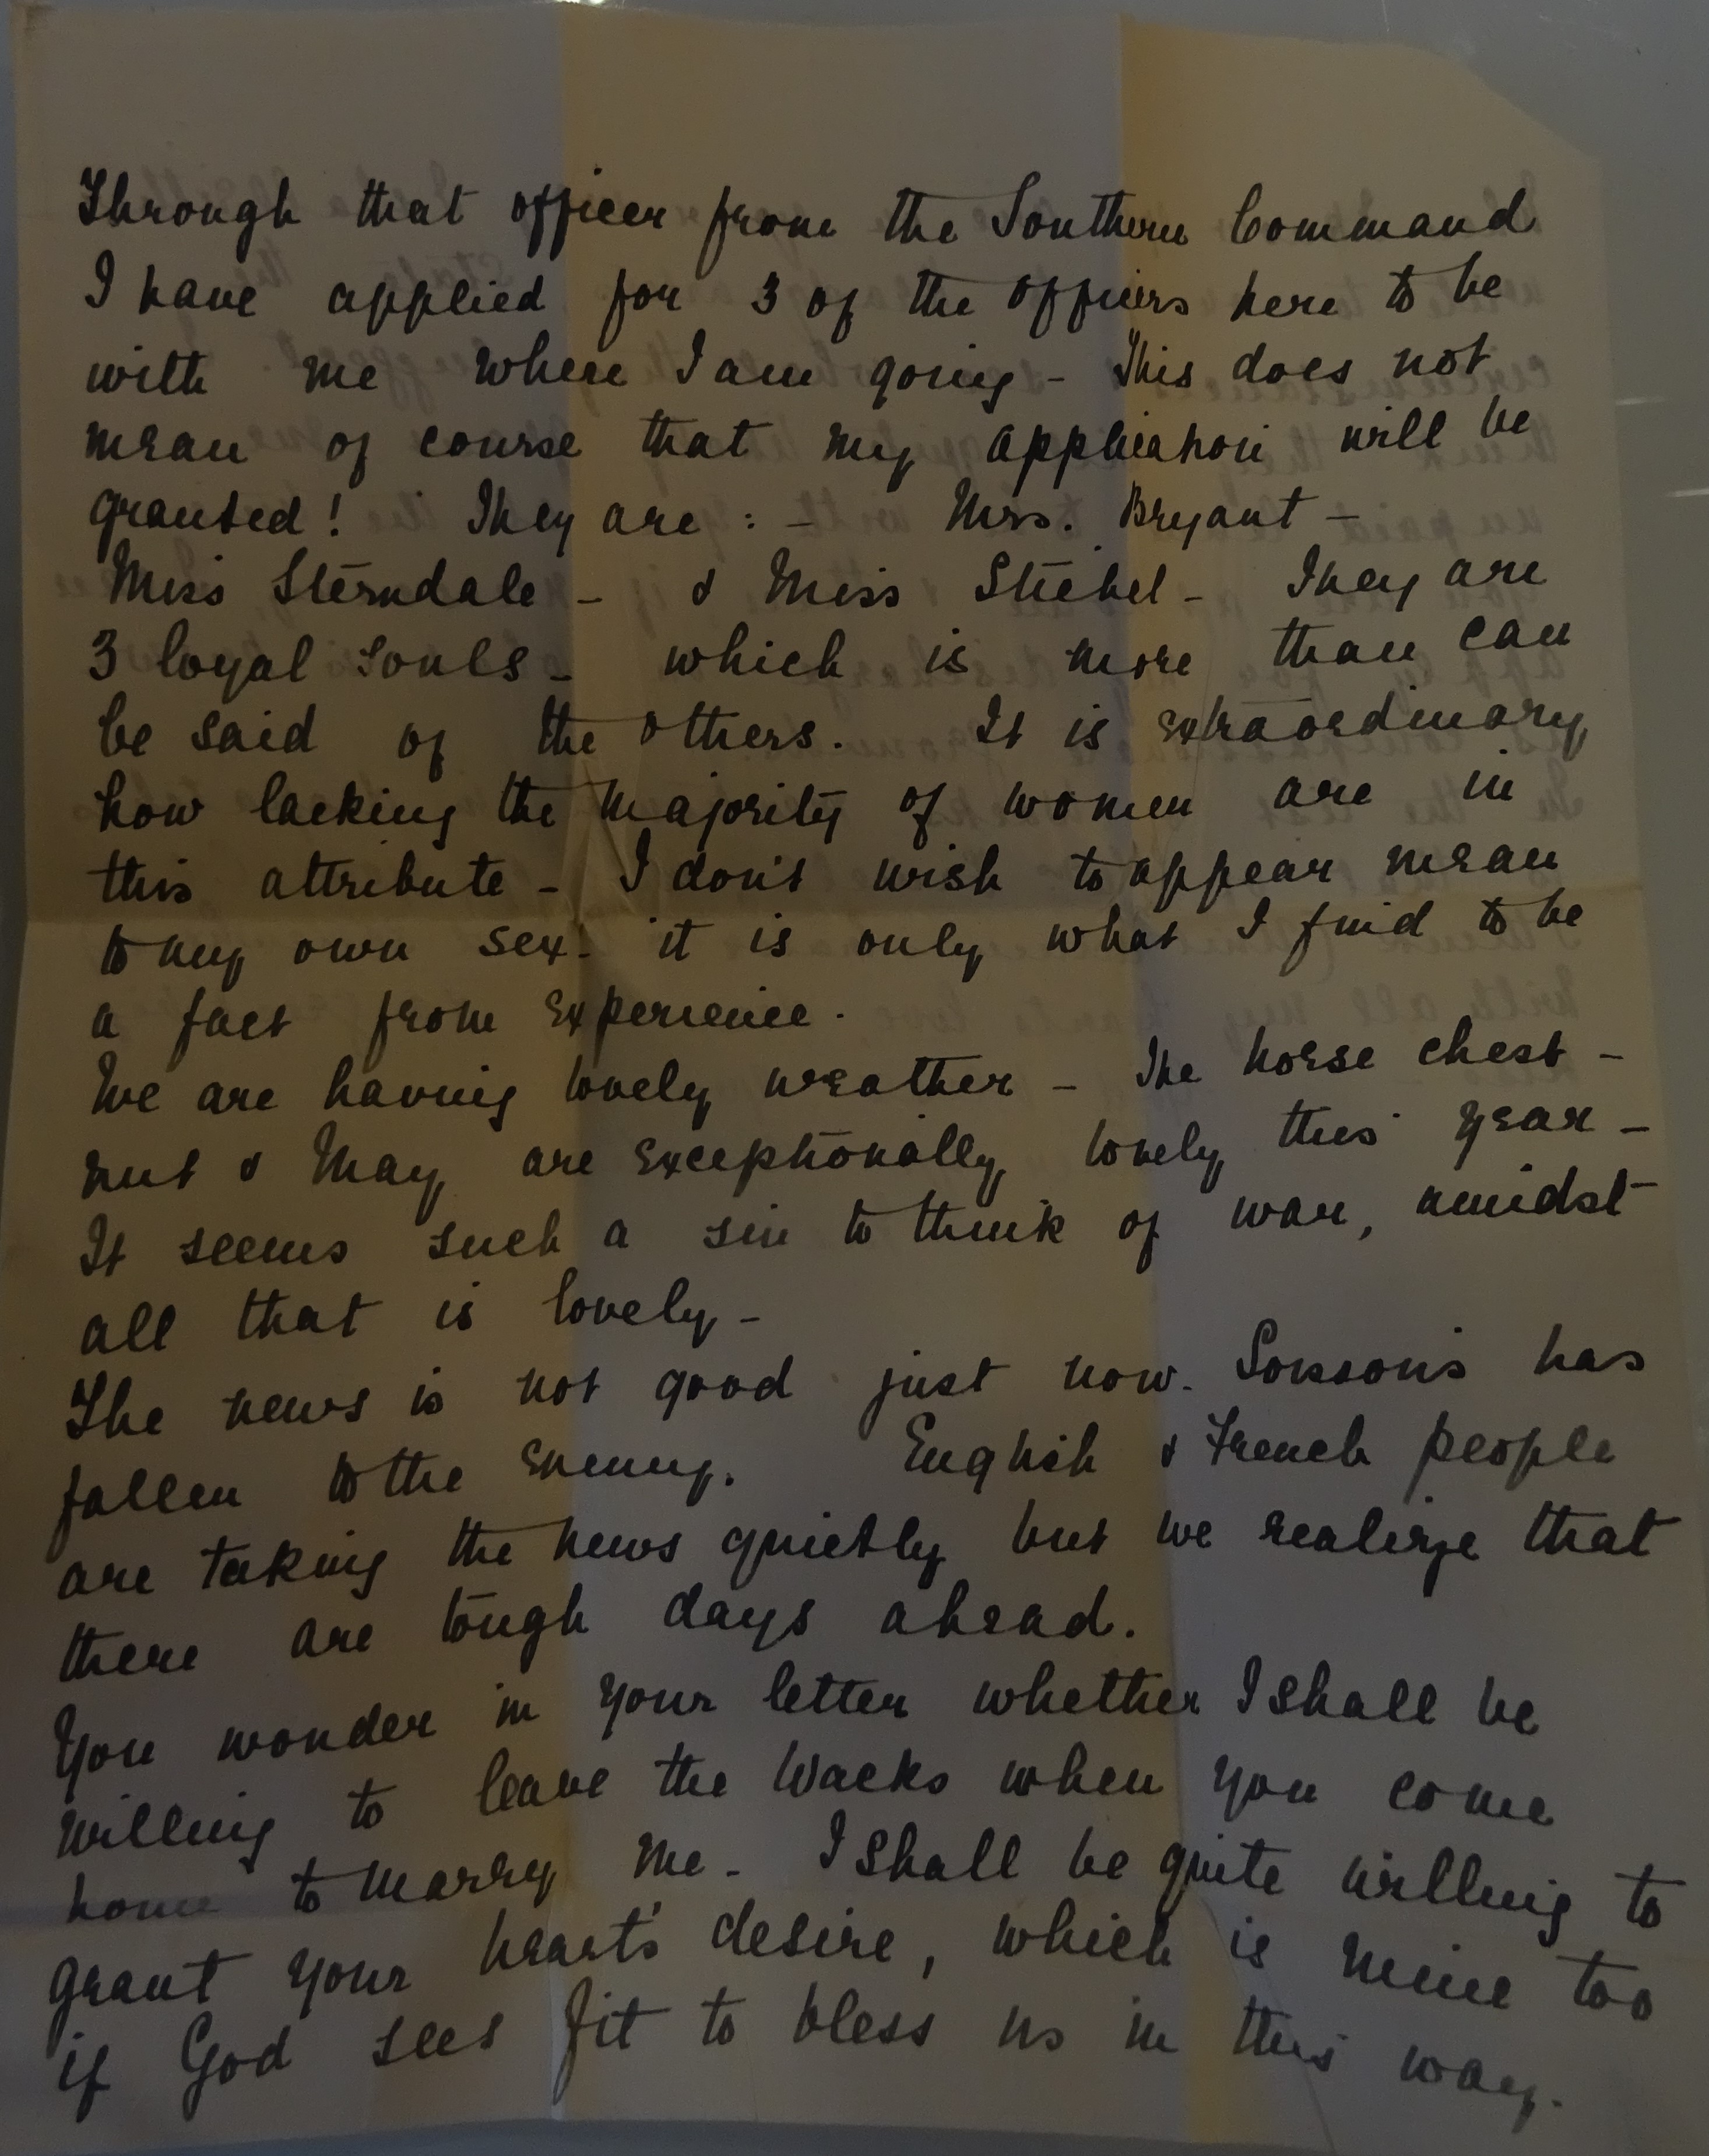 Through that officer from the Southern Command
I have applied for 3 of the officers here to be
with me where I am going - This does not
mean of course that my application will be
granted! They are : - Mrs. Bryant -
Miss Sterndale - & Miss Stiebel - They are
3 loyal souls - which is more than can
be said of the others. It is extraordinary
how lacking the majority of women are in
this attribute - I don't wish to appear mean
to my own sex - it is only what I find to be
a fact from experience.
We are having lovely weather - The horse chest -
nut & May are exceptionally lovely this year -
It seems such a sin to think of war, amidst
all that is lovely -
The news is not good just now. Soissons has
fallen to the enemy. English & French people
are taking the news quietly but we realize that
there are tough days ahead.
You wonder in your letter whether I shall be
willing to leave the Waacks when you come
home to marry me - I shall be quite willing to
grant your heart's desire, which is mine too
if God sees fit to bless us in this way.